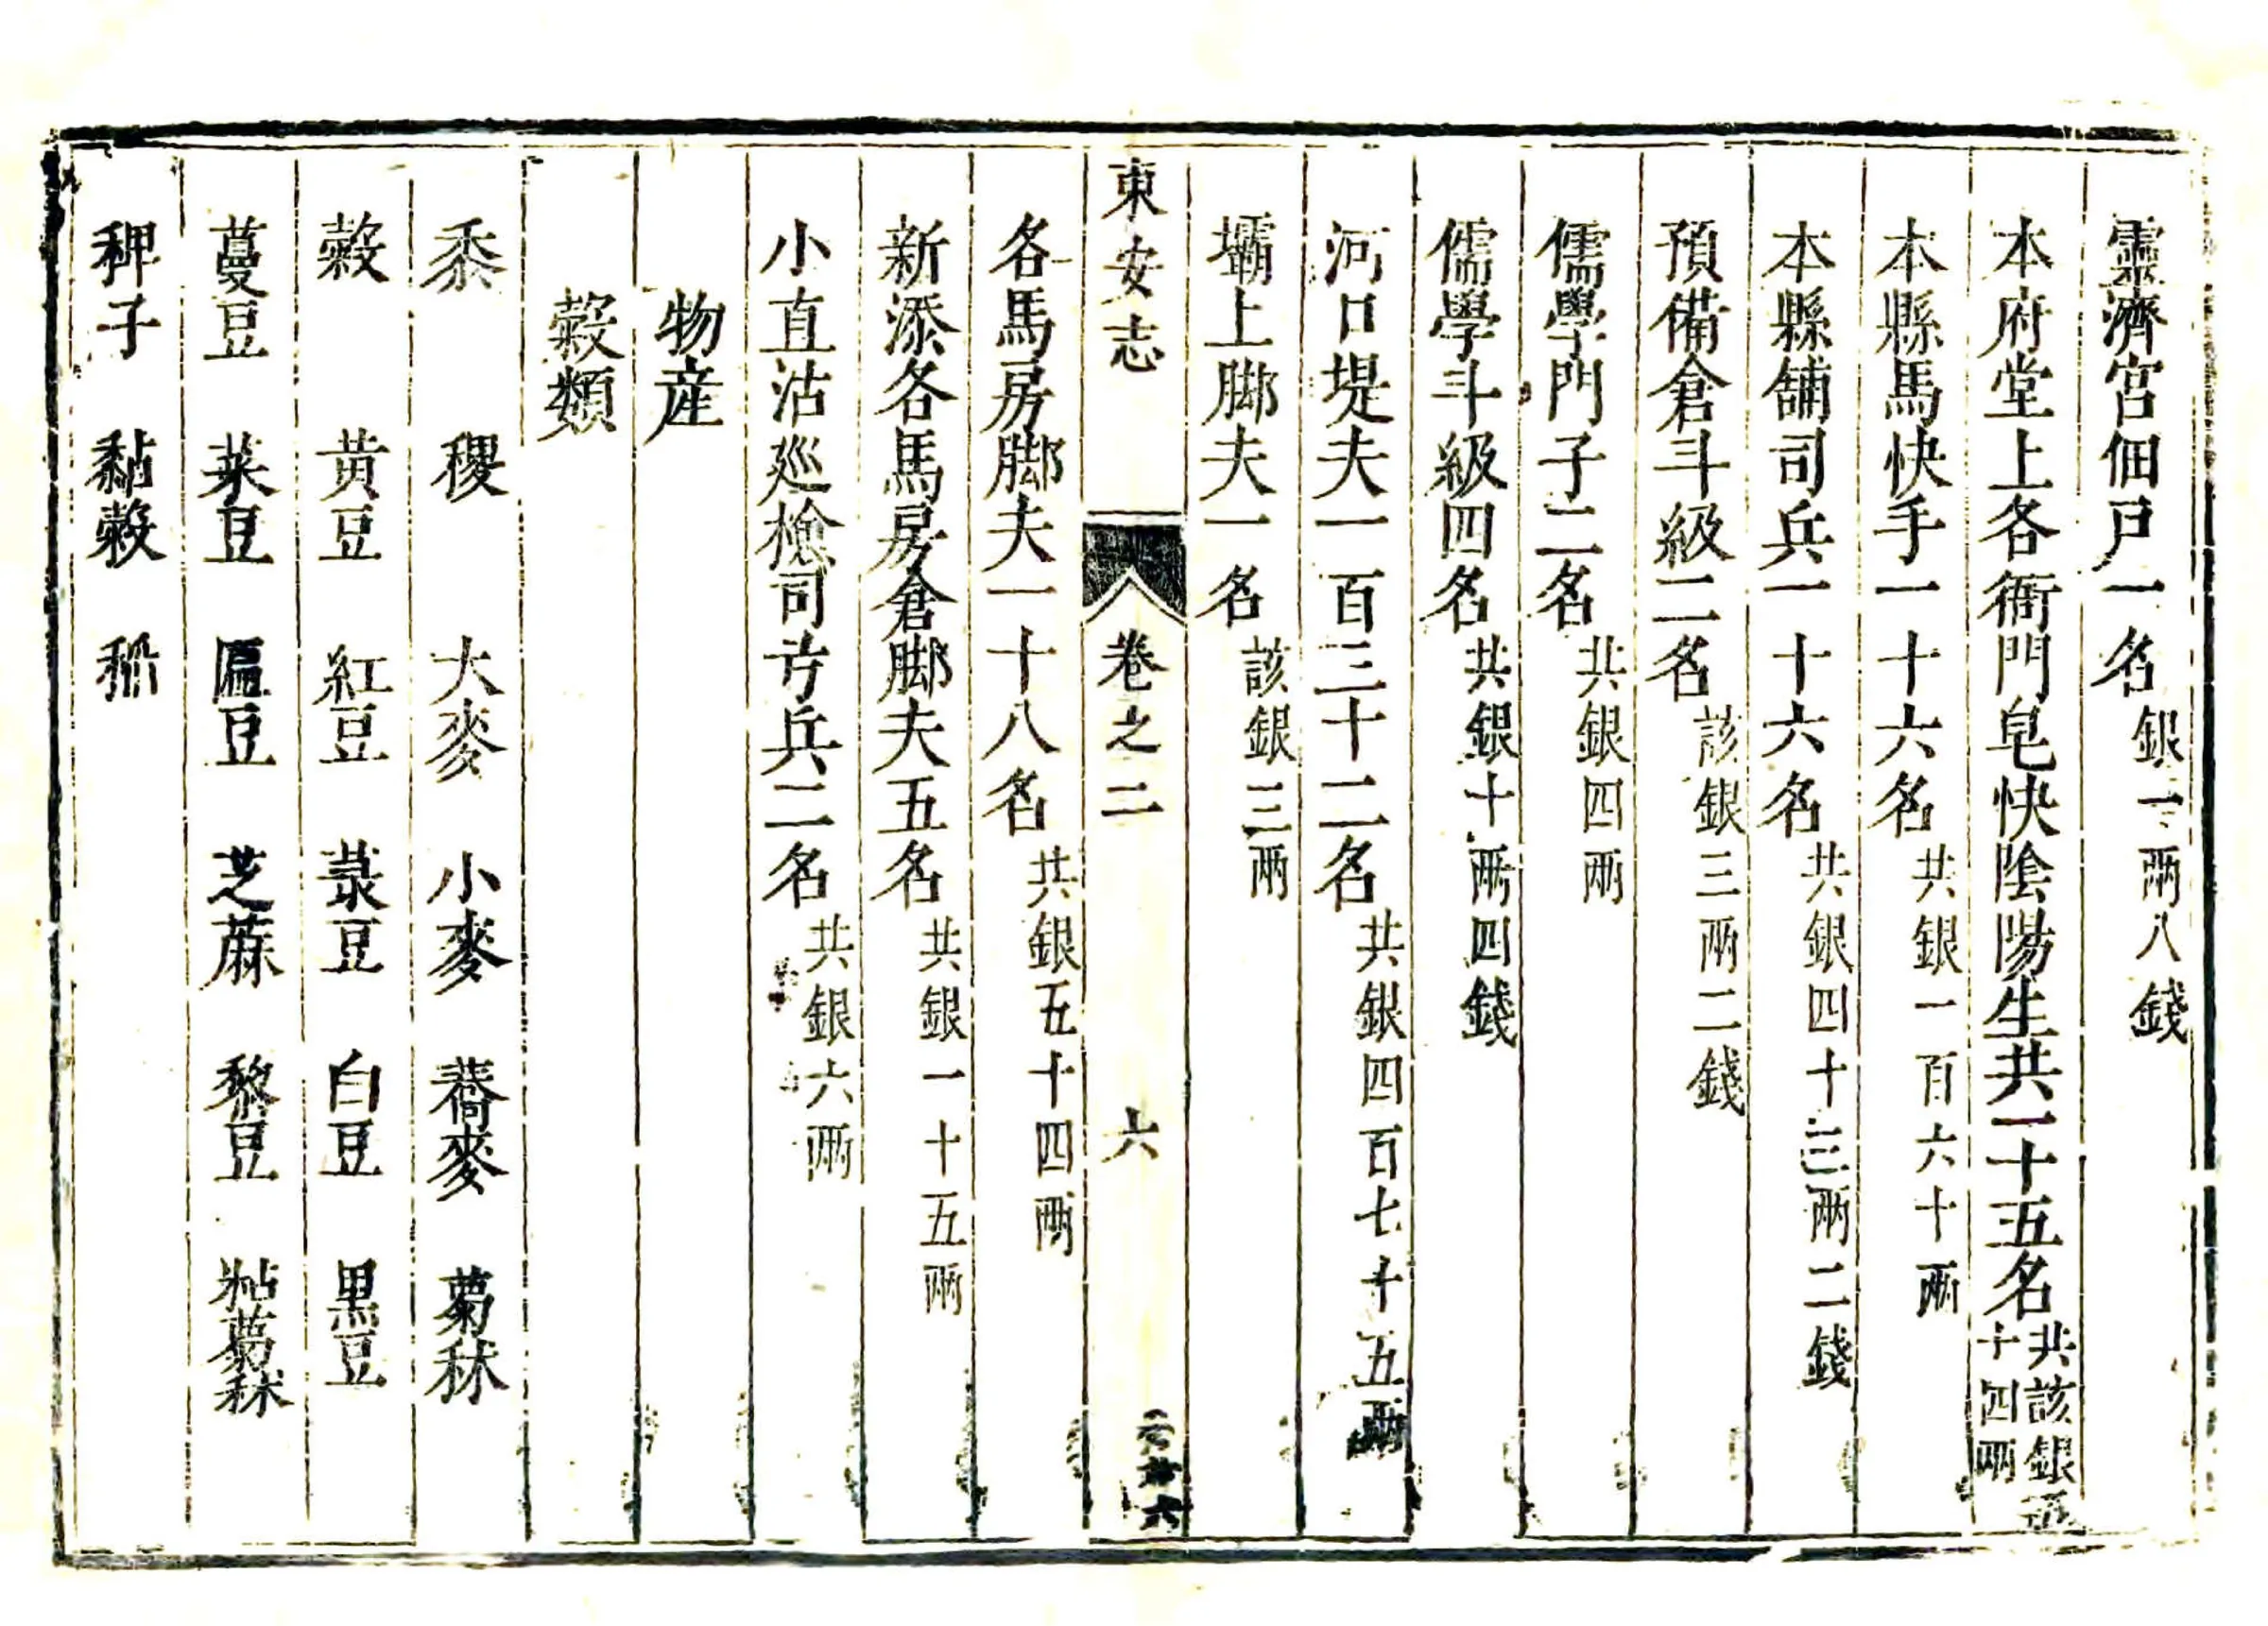 靈濟宮佃戸一名銀一兩八錢
本府堂上各衙門皂快陰陽生共一十五名共該銀五十四兩
本縣馬快手一十六名共銀一百六十兩
本縣舖司兵一十六名共銀四十三兩二錢
預備倉斗級二名該銀三兩二錢
儒學門子二名共銀四兩
儒學斗級四名共銀十兩四錢
河口堤夫一百三十二名共銀四百七十五兩
壩上脚夫一名該銀三兩
東安志 卷之二 六
各馬房脚夫一十八名共銀五十四兩
新添各馬房倉脚夫五名共銀一十五兩
小直沽廵檢司弓兵二名共銀六兩
物産
穀類
黍 稷 大麥 小麥 蕎麥 蔔秫
穀 黄豆 紅豆 菉豆 白豆 黒豆
蔓豆 菜豆 匾豆 芝蔴 黎豆 粘蔔秫
稗子 黏穀